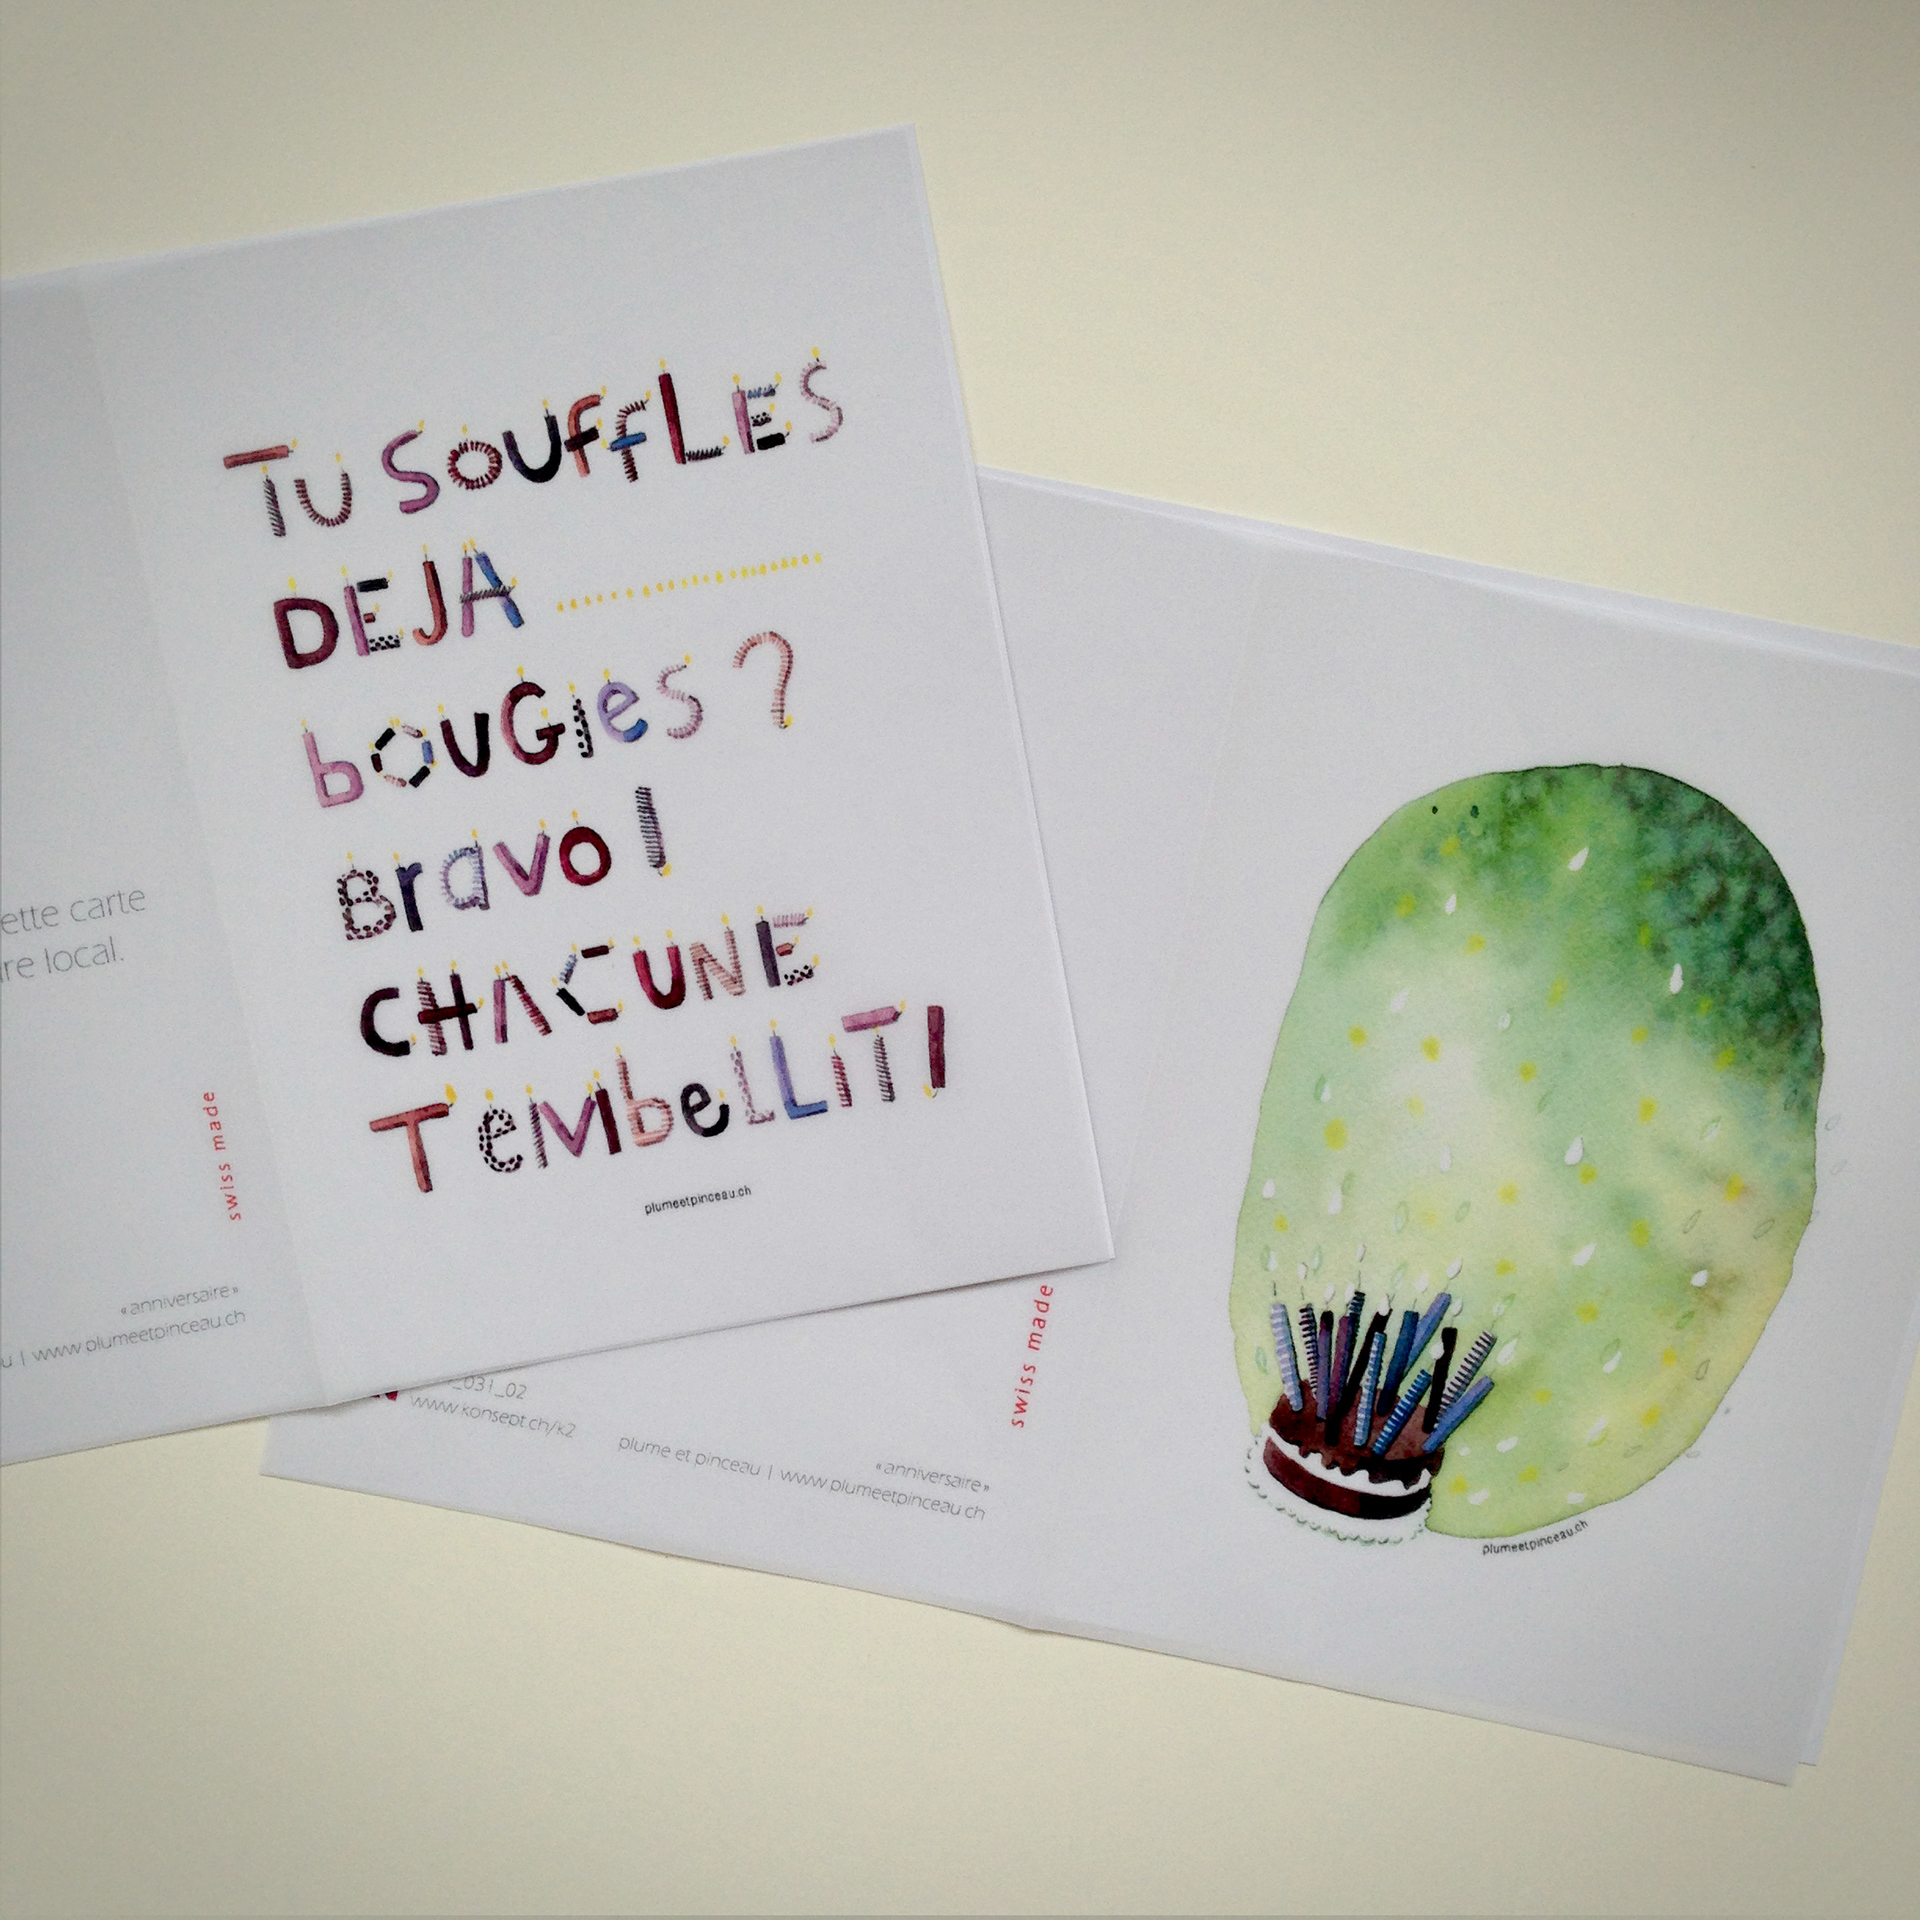 Tu SouffLES
DEJA ....................
bouGies ?
Bravo !
CHACUNE
TembeLLiT !
plumeetpinceau.ch
ette carte
re local.
swiss made
«anniversaire»
u | www.plumeetpinceau.ch
_031_02
www.konsept.ch/k2
plume et pinceau | www.plumeetpinceau.ch
«anniversaire»
swiss made
plumeetpinceau.ch